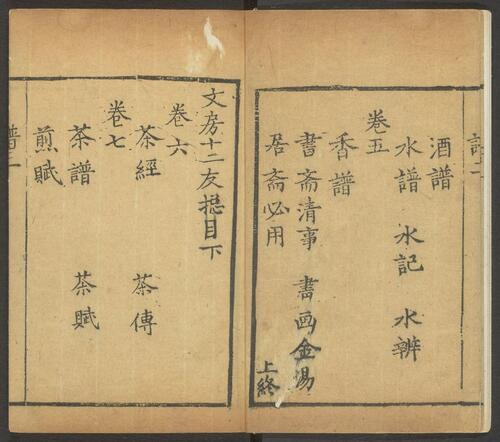 酒譜
水譜 水記 水辨
卷五
香譜
書斋清事 書画金湯
居斋必用
上終
文房十二友揔目下
卷六
茶經 茶傳
卷七
茶譜 茶賦
煎賦